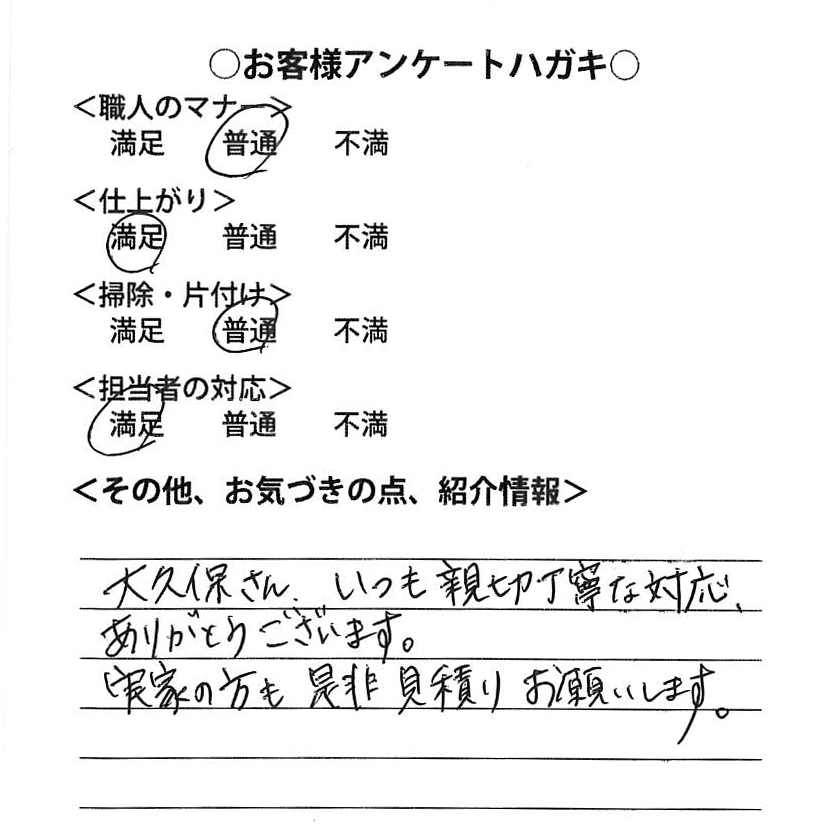 ○お客様アンケートハガキ○
＜職人のマナー＞
満足 普通 不満
＜仕上がり＞
満足 普通 不満
＜掃除・片付け＞
満足 普通 不満
＜担当者の対応＞
満足 普通 不満
＜その他、お気づきの点、紹介情報＞
大久保さん、いつも親切丁寧な対応、
ありがとうございます。
実家の方も是非見積りお願いします。